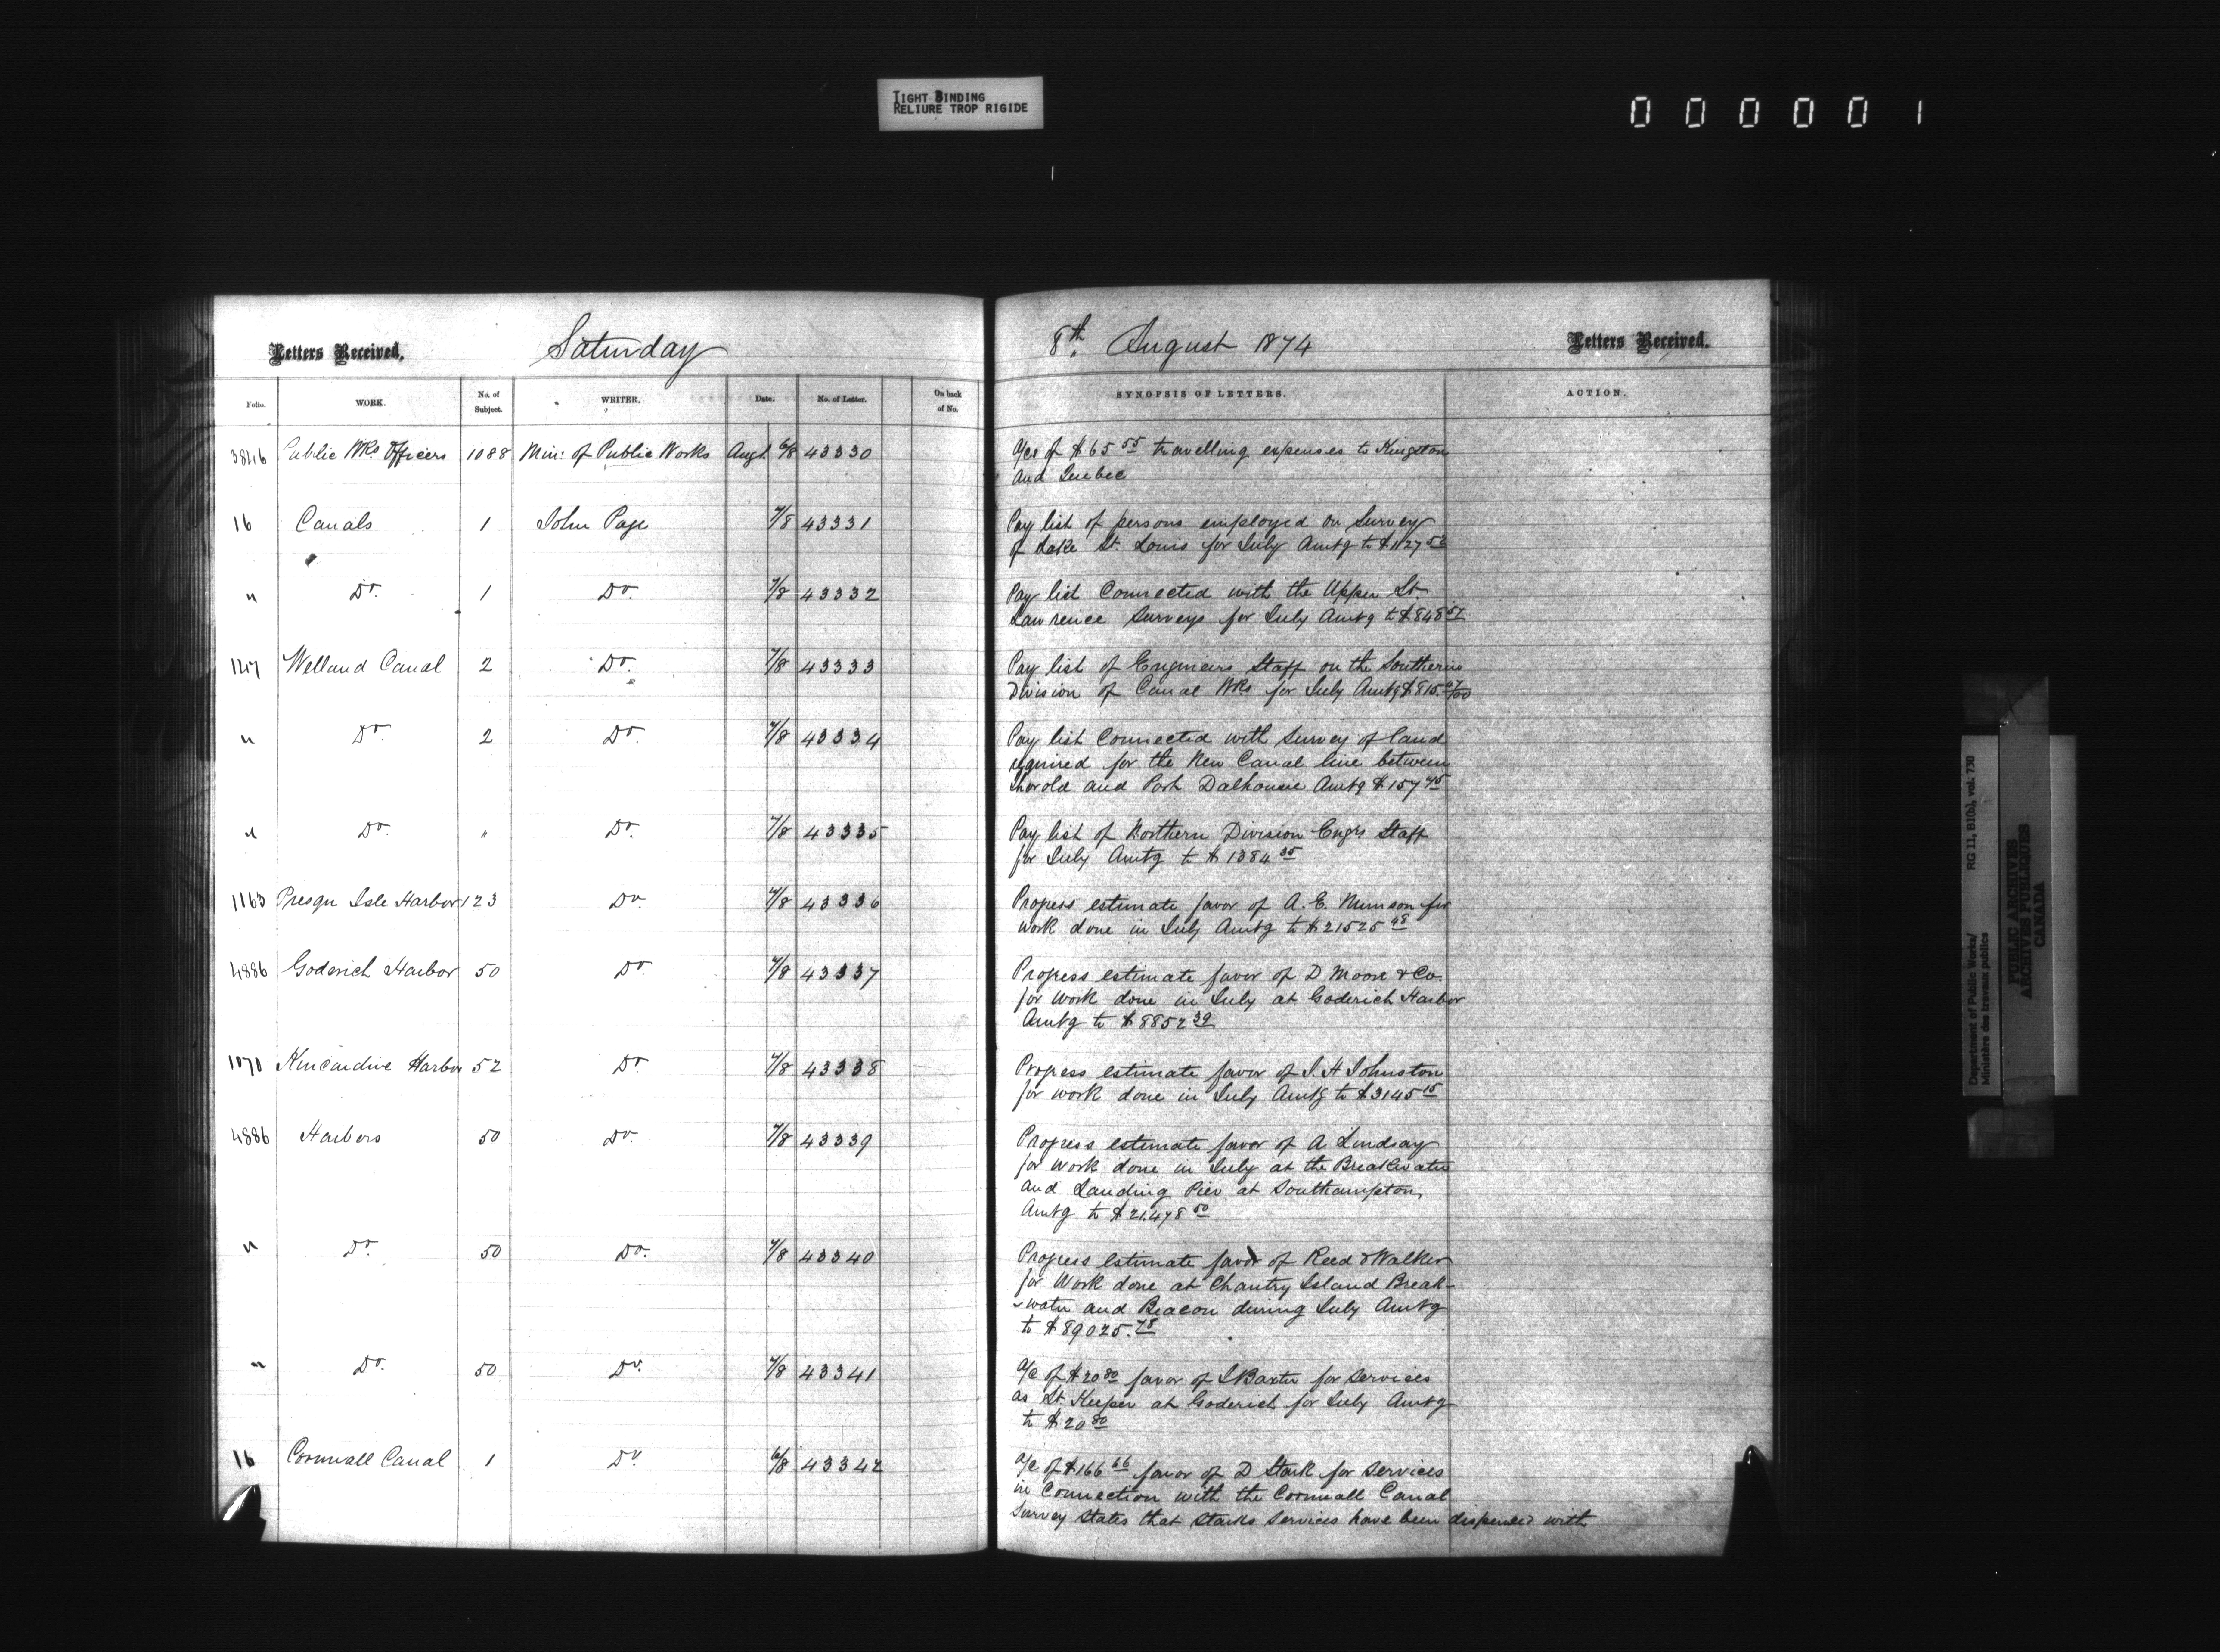 TIGHT BINDING
RELIURE TROP RIGIDE
0 0 0 0 0 1
Letters Received. Saturday
Folio. WORK. No. of Subject. WRITER. Date. No. of Letter. On back of No.
3846 Public Wks Officers 1088 Min: of Public Works Augt 6/8 43330
16 Canals 1 John Page 7/8 43331
" Do. 1 Do. 7/8 43332
Welland Canal 2 Do. 7/8 43333
" Do. 2 Do. 7/8 43334
" Do. " Do. 7/8 43335
1163 Presqu Isle Harbor 123 Do. 7/8 43336
4886 Goderich Harbor 50 Do 7/8 43337
1070 Kincardine Harbor 52 Do 7/8 43338
4886 Harbors 50 Do. 7/8 43339
" Do. 50 Do. 7/8 43340
" Do. 50 Do. 7/8 43341
16 Cornwall Canal 1 Do. 6/8 43342
8th. August 1874 Letters Received.
SYNOPSIS OF LETTERS. ACTION.
A/cs of $65 55 travelling expenses to Kingston
and Quebec
Pay list of persons employed on Survey
of Lake St. Louis for July Amtg to $1127 52
Pay list Connected with the Upper St.
Lawrence Surveys for July Amtg to $848 57
Pay list of Engineers Staff on the Southern
Division of Canal Wks for July Amtg $815. 67/00
Pay list Connected with Survey of land
required for the New Canal line between
Thorold and Port Dalhousie Amtg $157 45
Pay list of Northern Division Engrs Staff
for July Amtg to $1384 35
Progress estimate favor of A. E. Munson for
work done in July Amtg to $21525 48
Progress estimate favor of D Moore & Co.
for work done in July at Goderich Harbor
Amtg to $8852 39
Progress estimate favor of J. H Johnston
for work done in July Amtg to $3145 15
Progress estimate favor of A Lindsay
for work done in July at the Breakwater
and Landing Pier at Southampton,
Amtg to $21,478 50
Progress estimate favor of Reed & Walker
for Work done at Chantry Island Break-
-water and Beacon during July Amtg
to $89025. 78
A/c of $20 80 favor of J Baxter for services
as Lt. Keeper at Goderich for July Amtg
to $20 80
A/c of $166 66 favor of D Stark for services
in Connection with the Cornwall Canal
Survey states that Starks services have been dispensed with
Department of Public Works/ RG 11, B1(b), vol. 730
Ministère des travaux publics
PUBLIC ARCHIVES
ARCHIVES PUBLIQUES
CANADA